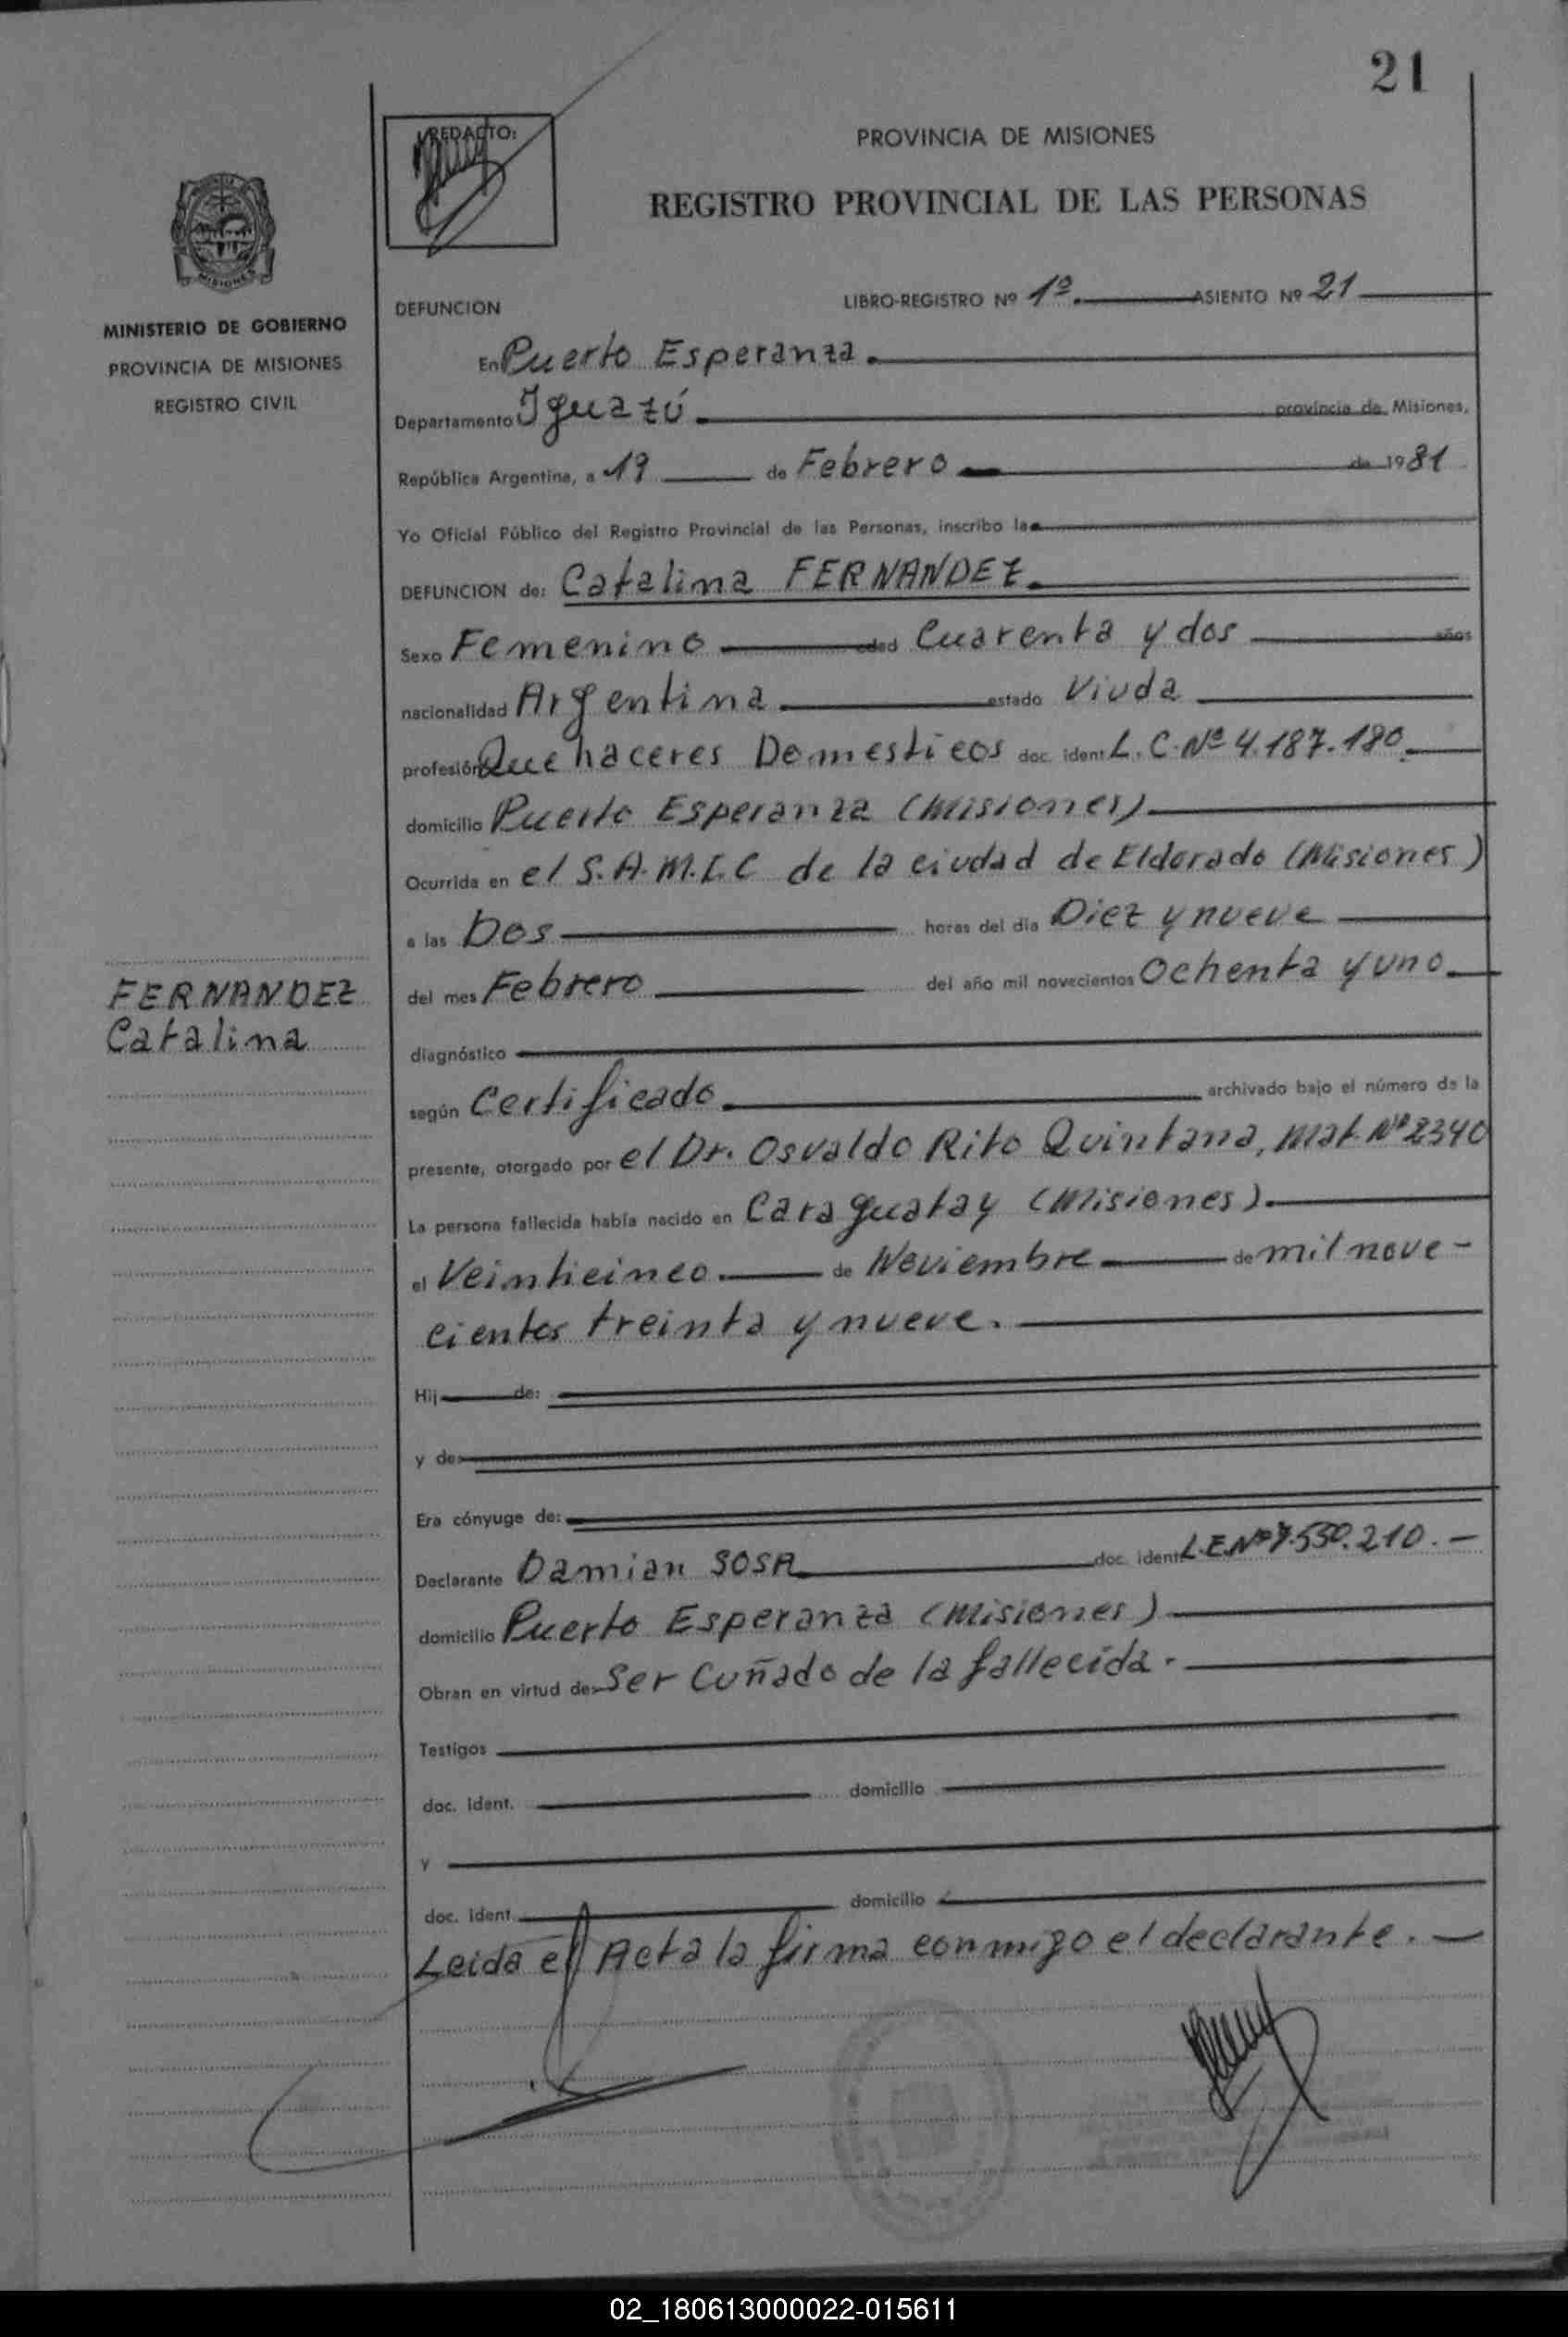 21
REDACTO:
PROVINCIA DE MISIONES
REGISTRO PROVINCIAL DE LAS PERSONAS
MISIONES
MINISTERIO DE GOBIERNO
PROVINCIA DE MISIONES
REGISTRO CIVIL
DEFUNCION
LIBRO-REGISTRO Nº 1º. ASIENTO Nº 21
En Puerto Esperanza.
Departamento Iguazú provincia de Misiones,
República Argentina, a 19 de Febrero de 1981
Yo Oficial Público del Registro Provincial de las Personas, inscribo la
DEFUNCION de: Catalina FERNANDEZ.
Sexo Femenino edad Cuarenta y dos años
nacionalidad Argentina estado Viuda
profesión Que haceres Domesticos doc. ident. L.C.Nº 4.187.180.
domicilio Puerto Esperanza (Misiones)
Ocurrida en el S.A.M.I.C de la ciudad de Eldorado (Misiones)
a las Dos horas del día Diez y nueve
del mes Febrero del año mil novecientos Ochenta y uno
FERNANDEZ
Catalina
diagnóstico
según Certificado archivado bajo el número de la
presente, otorgado por el Dr. Osvaldo Rito Quintana, Mat. Nº 2340
La persona fallecida había nacido en Caraguatay (Misiones).
el Veinticinco de Noviembre de mil nove-
cientos treinta y nueve.
Hij de:
y de
Era cónyuge de:
Declarante Damian SOSA doc. ident. L.E.Nº 7.550.210.-
domicilio Puerto Esperanza (Misiones)
Obran en virtud de Ser Cuñado de la fallecida.
Testigos
doc. ident. domicilio
y
doc. ident. domicilio
Leida el Acta la firma conmigo el declarante.-
02_180613000022-015611